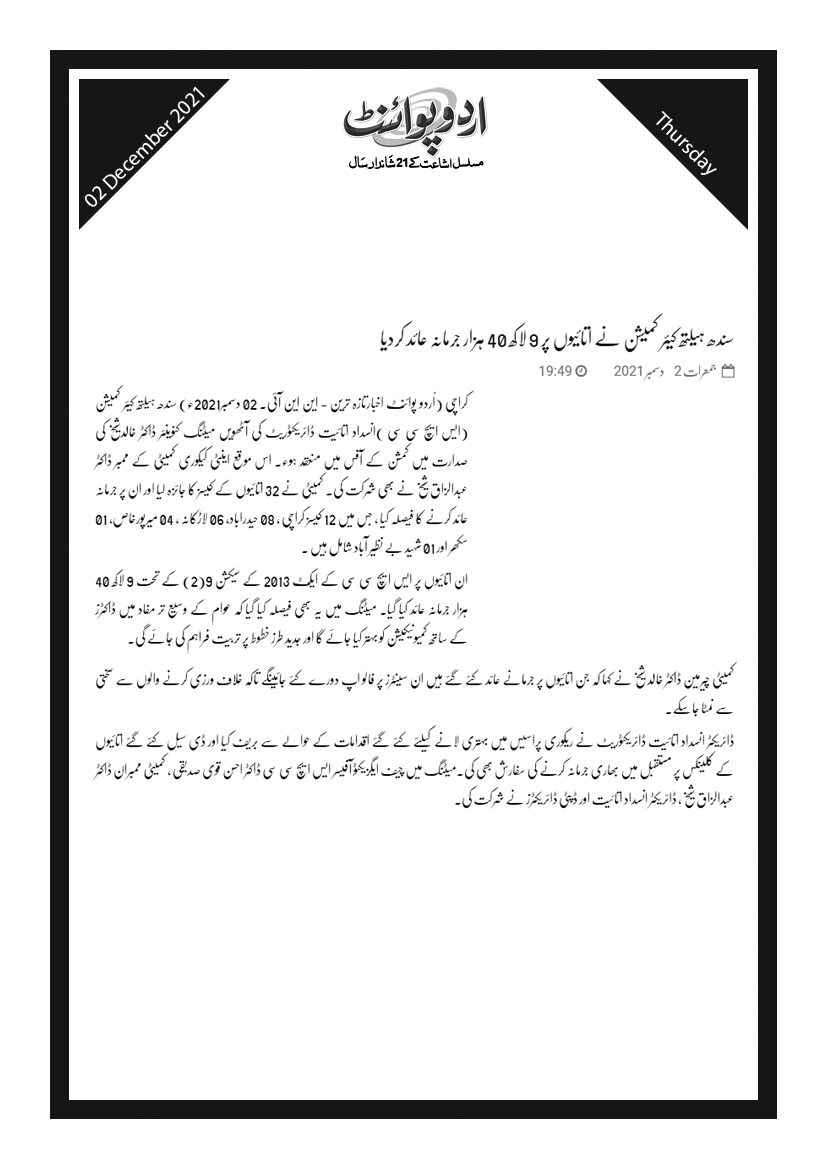 02 December 2021
اردو پوائنٹ
مسلسل اشاعت کے 21 شاندار سال
Thursday
سندھ ہیلتھ کیئر کمیشن نے اتائیوں پر 9 لاکھ 40 ہزار جرمانہ عائد کر دیا
جمعرات 2 دسمبر 2021 19:49
کراچی (اُردو پوائنٹ اخبارتازہ ترین - این این آئی۔ 02 دسمبر2021ء) سندھ ہیلتھ کیئر کمیشن
(ایس ایچ سی سی )انسداد اتائیت ڈائریکٹوریٹ کی آٹھویں میٹنگ کنوینئر ڈاکٹر خالدشیخ کی
صدارت میں کمشن کے آفس میں منعقد ہوء۔ اس موقع اینٹی کیکوری کمیٹی کے ممبر ڈاکٹر
عبدالزاق شیخ نے بھی شرکت کی۔ کمیٹی نے 32 اتائیوں کے کیسز کا جائزہ لیا اور ان پر جرمانہ
عائد کرنے کا فیصلہ کیا ، جس میں 12 کیسز کراچی ، 08 حیدراباد، 06 لاڑکانہ ، 04 میرپورخاص، 01
سکھر اور 01 شہید بے نظیر آباد شامل ہیں ۔
ان اتائیوں پر ایس ایچ سی سی کے ایکٹ 2013 کے سیکشن 9(2) کے تحت 9 لاکھ 40
ہزار جرمانہ عائد کیا گیا۔ میٹنگ میں یہ بھی فیصلہ کیا گیا کہ عوام کے وسیع تر مفاد میں ڈاکٹرز
کے ساتھ کمیونیکیشن کو بہتر کیا جائے گا اور جدید طرز خطوط پر تربیت فراہم کی جائے گی۔
کمیٹی چیرمین ڈاکٹر خالد شیخ نے کہا کہ جن اتائیوں پر جرمانے عائد کئے گئے ہیں ان سینٹرز پر فالو اپ دورے کئے جائینگے تاکہ خلاف ورزی کرنے والوں سے سختی
سے نمٹا جا سکے۔
ڈائریکٹر انسداد اتائیت ڈائریکٹوریٹ نے ریکوری پراسیس میں بہتری لانے کیلئے کئے گئے اقدامات کے حوالے سے بریف کیا اور ڈی سیل کئے گئے اتائیوں
کے کلینکس پر مستقبل میں بھاری جرمانہ کرنے کی سفارش بھی کی۔میٹنگ میں چیف ایگزیکٹو آفیسر ایس ایچ سی سی ڈاکٹر احسن قوی صدیقی ، کمیٹی ممبران ڈاکٹر
عبدالزاق شیخ ، ڈائریکٹر انسداد اتائیت اور ڈپٹی ڈائریکٹرز نے شرکت کی۔